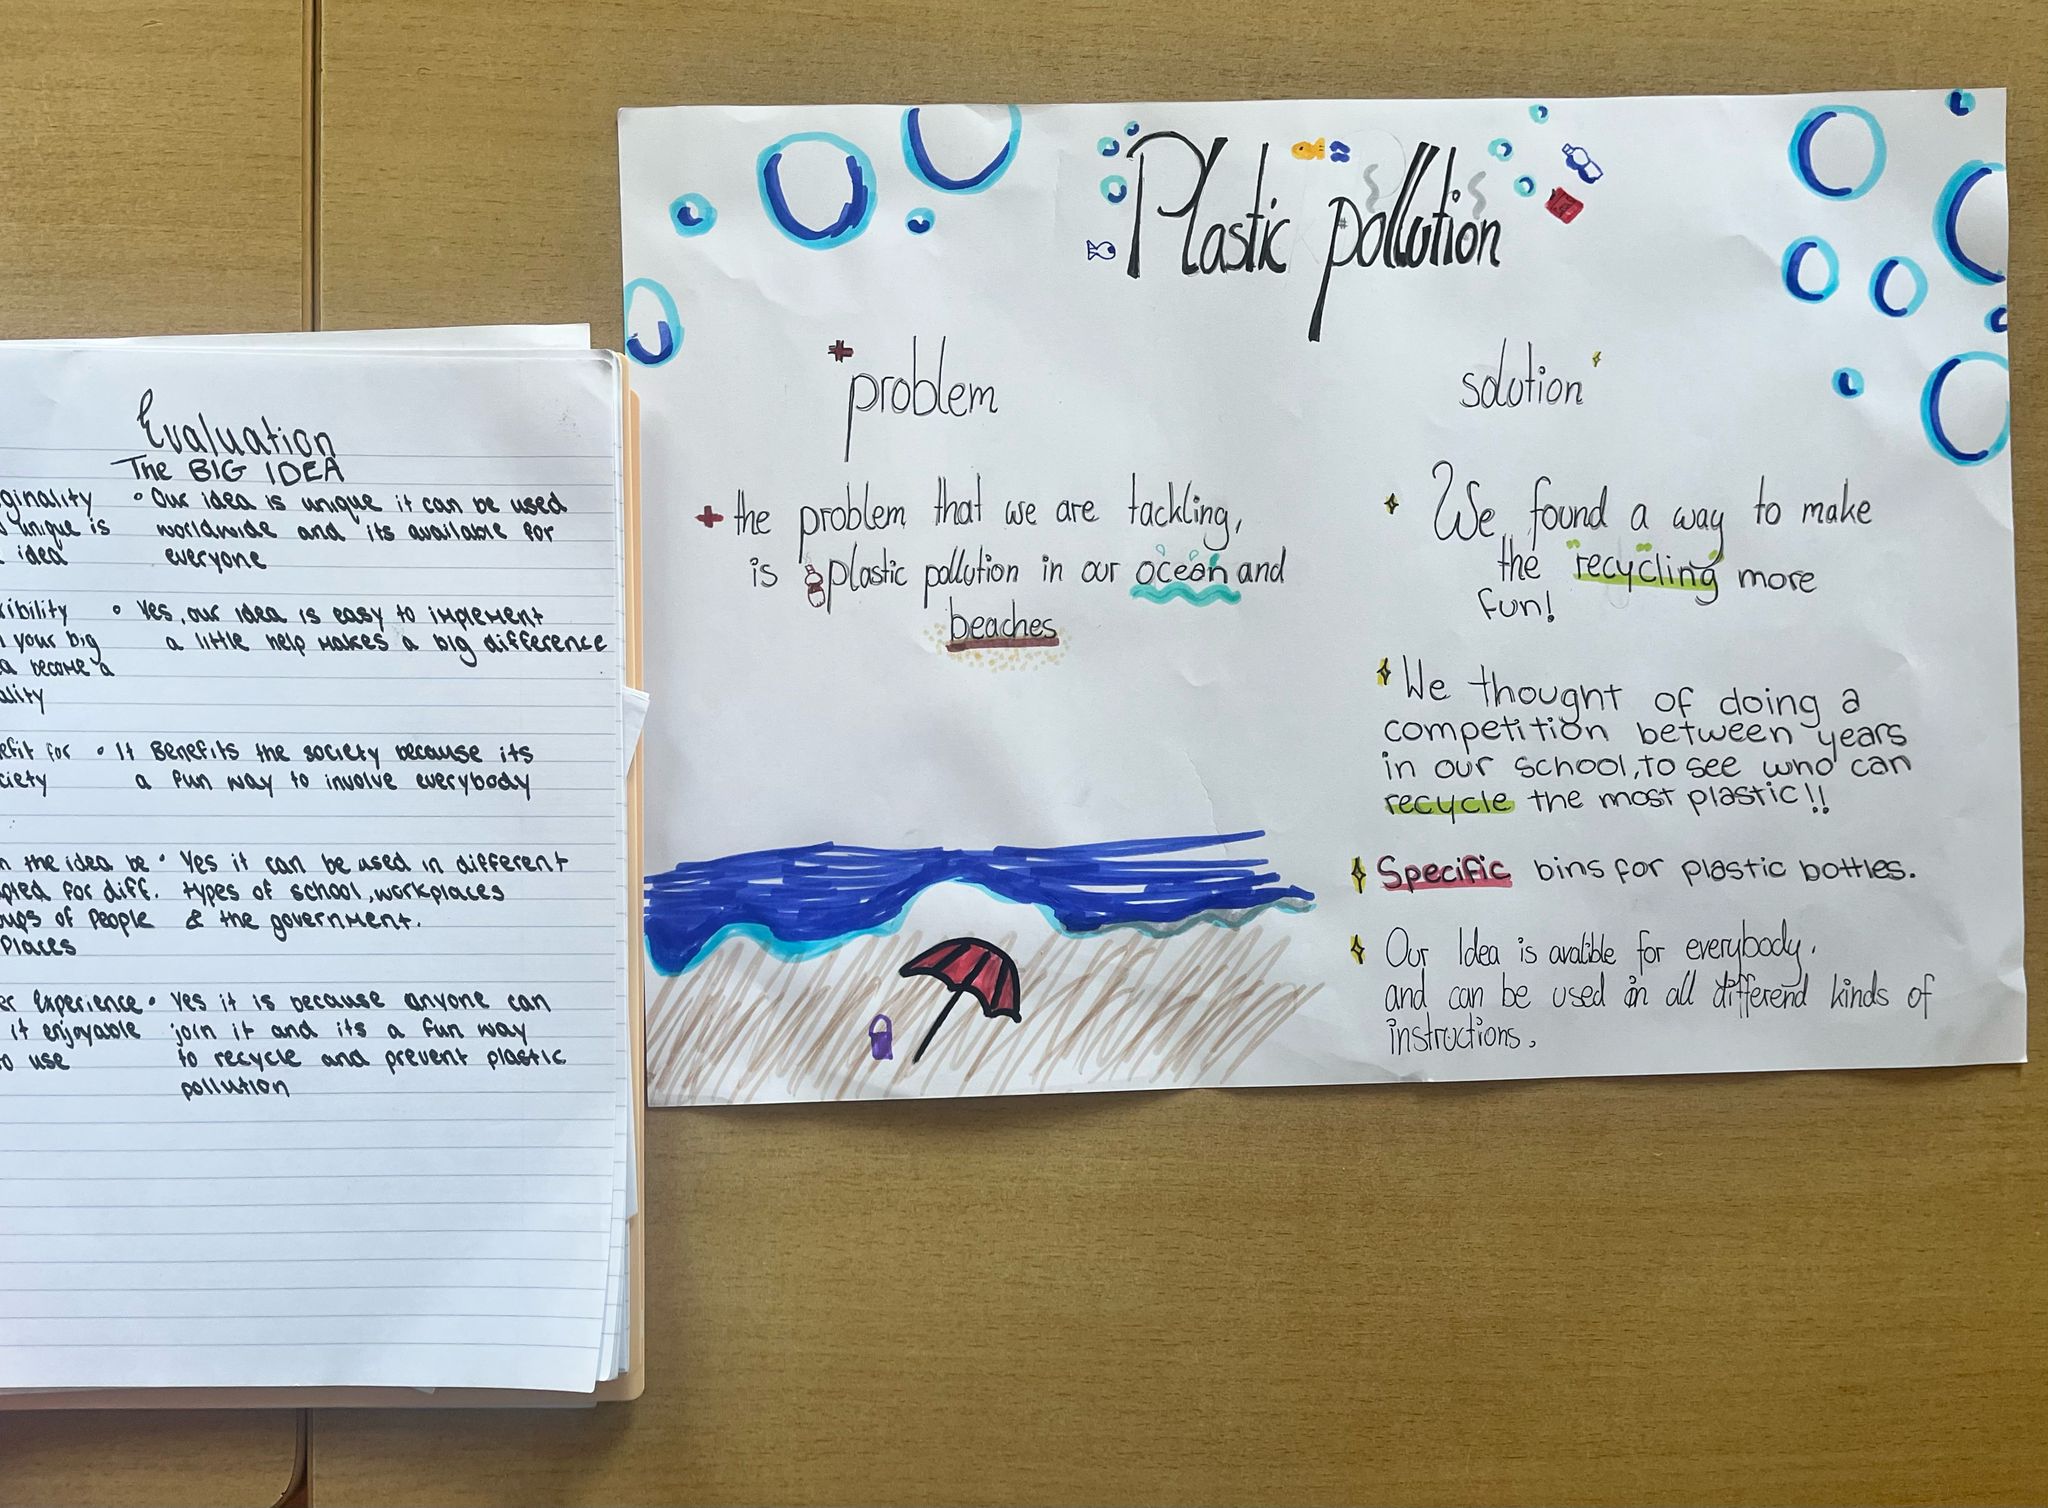 Evaluation
The BIG IDEA
ginality
unique is
idea
• Our idea is unique it can be used
worldwide and its available for
everyone
ibility
your big
a become a
ality
• Yes, our idea is easy to implement
a little help makes a big difference
efit for
ciety
• It Benefits the society because its
a fun way to involve everybody
n the idea be
pted for diff.
oups of People
Places
• Yes it can be used in different
types of school, workplaces
& the government.
er Experience
it enjoyable
to use
• Yes it is because anyone can
join it and its a fun way
to recycle and prevent plastic
pollution
Plastic pollution
problem
the problem that we are tackling,
is plastic pollution in our ocean and
beaches
solution
We found a way to make
the recycling more
fun!
We thought of doing a
competition between years
in our school, to see who can
recycle the most plastic!!
Specific bins for plastic bottles.
Our Idea is avalible for everybody.
and can be used in all differend kinds of
instructions.